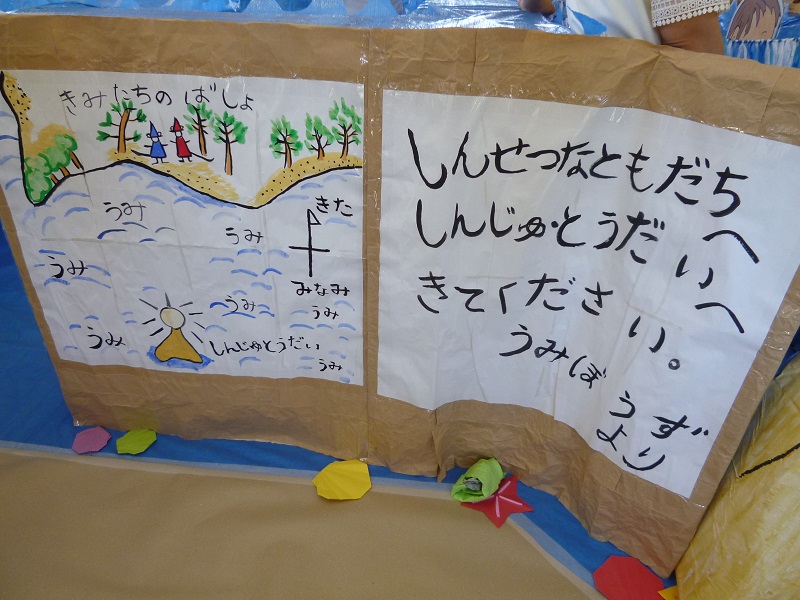 きみたちのばしょ
うみ
きた
うみ
うみ
みなみ
うみ
うみ
うみ
しんじゅとうだい
うみ
しんせつなともだちへ
しんじゅとうだいへ
きてください。
うみぼうず
より